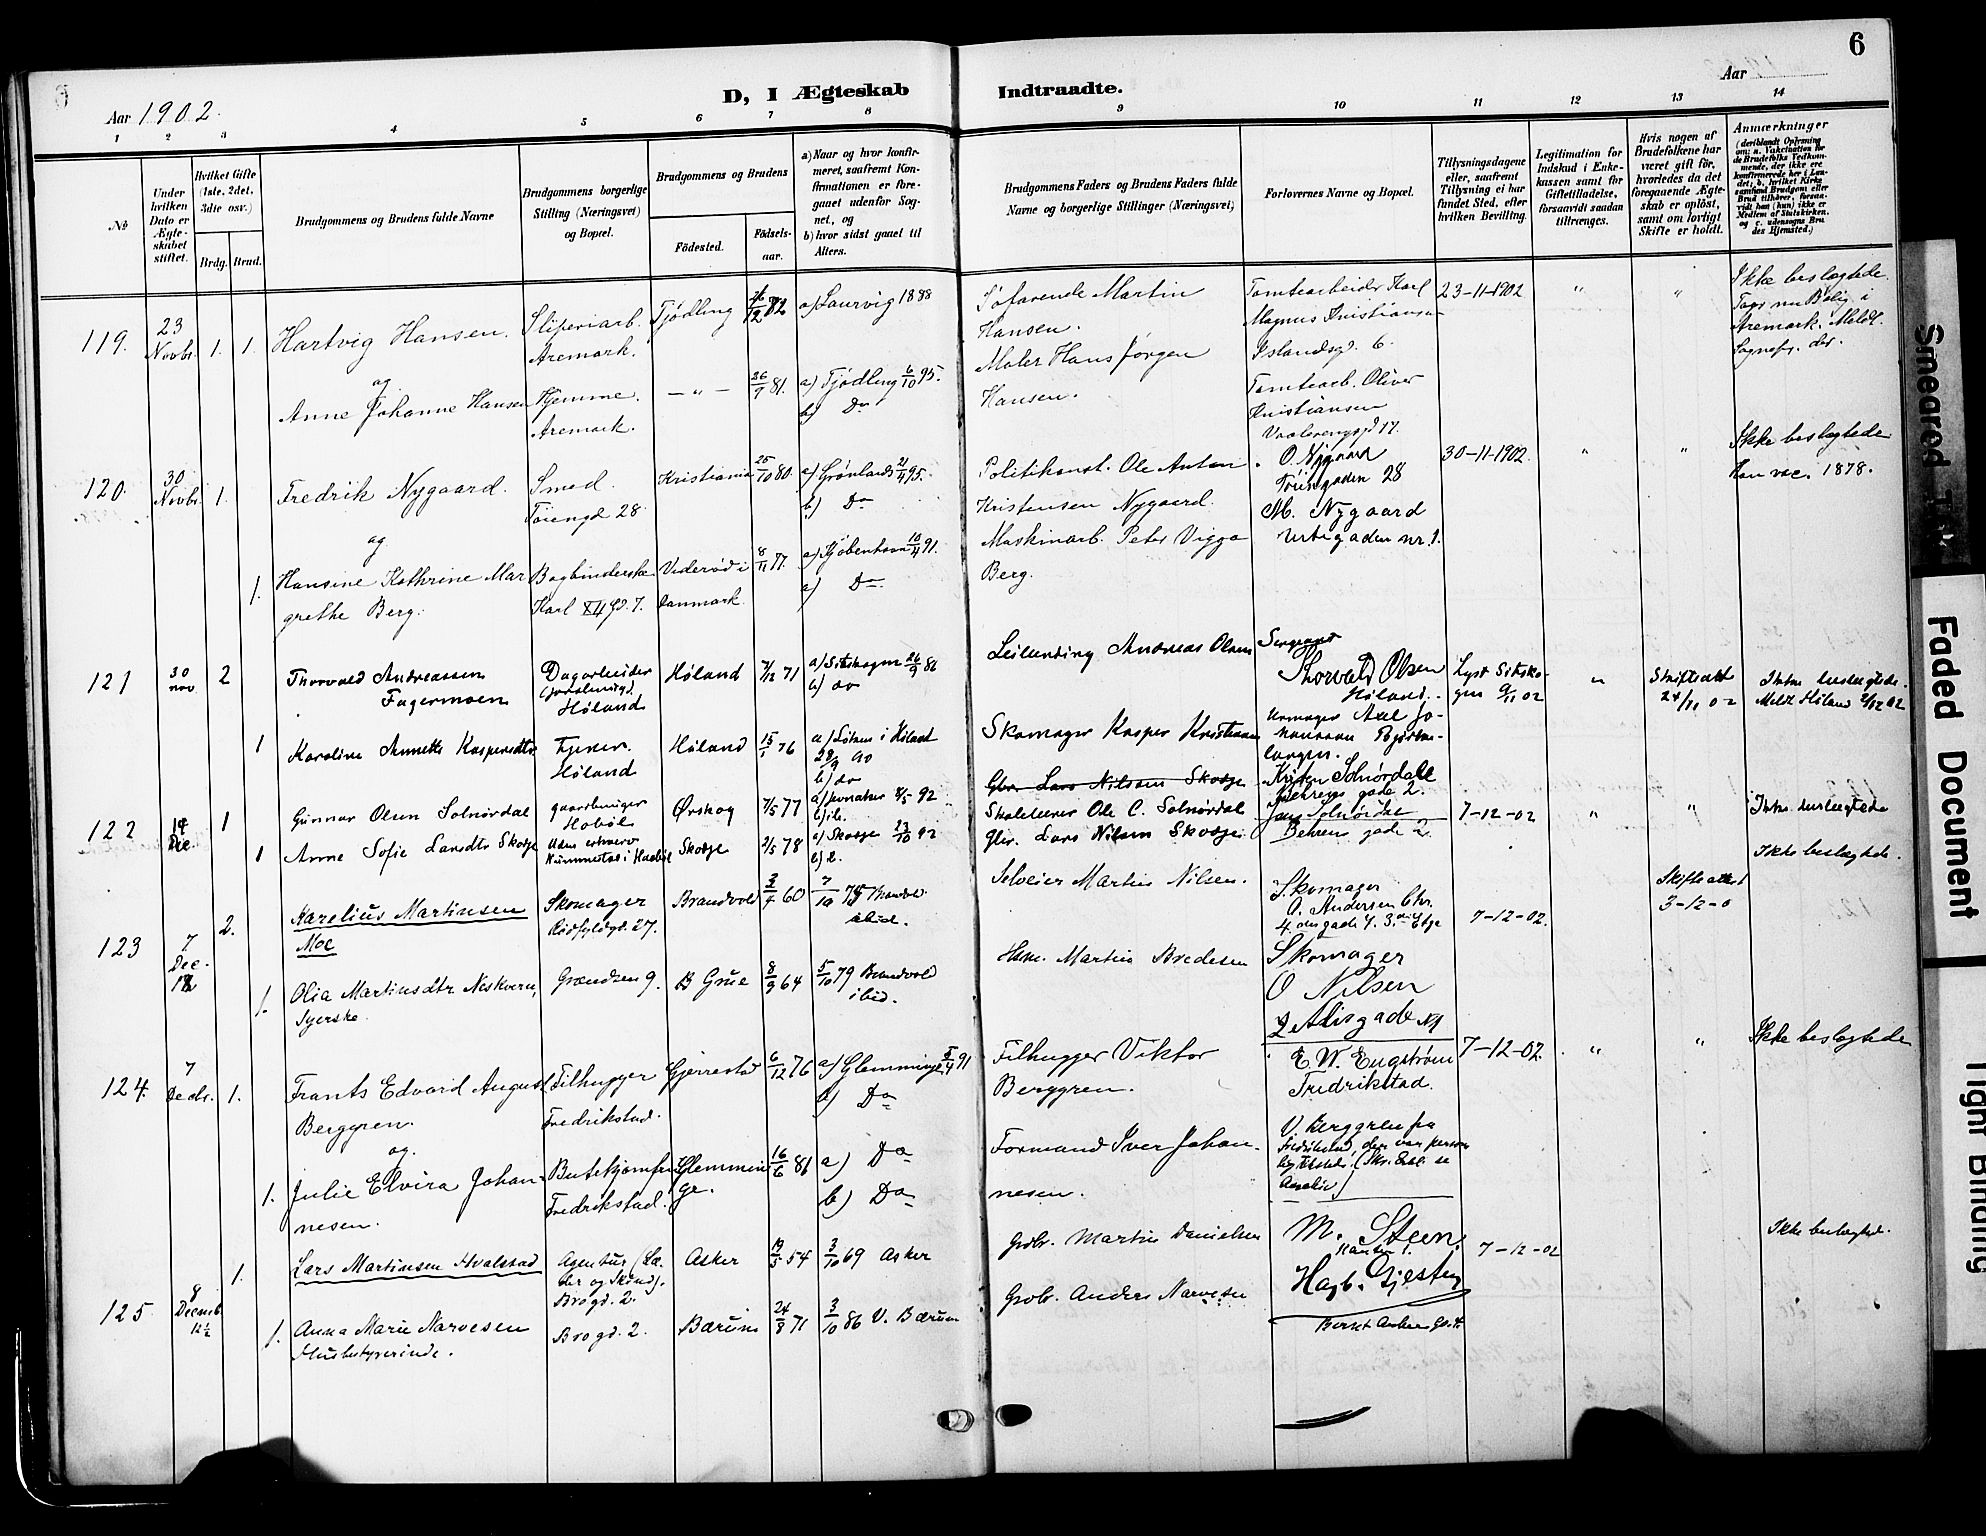 6
Aar 1902.
D, I Ægteskab Indtraadte.
Aar
1 2 3 4 5 6 7 8 9 10 11 12 13 14
No
Under hvilken Dato er Ægteskabet stiftet.
Hvilket Gifte (1ste, 2det, 3die osv.)
Brdg. Brud.
Brudgommens og Brudens fulde Navne
Brudgommens borgerlige Stilling (Næringsvei) og Bopæl.
Brudgommens og Brudens
Födested.
Födselsaar.
a) Naar og hvor konfirmeret, saafremt Konfirmationen er foregaaet udenfor Sognet, og
b) hvor sidst gaaet til Alters.
Brudgommens Faders og Brudens Faders fulde Navne og borgerlige Stillinger (Næringsvei)
Forlovernes Navne og Bopæl.
Tillysningsdagene eller, saafremt Tillysning ei har fundet Sted, efter hvilken Bevilling.
Legitimation for Indskud i Enkekassen samt for Giftetilladelse, forsaavidt saadan tiltrænges.
Hvis nogen af Brudefolkene har været gift för, hvorledes da det foregaaende Ægteskab er oplöst, samt om lovligt Skifte er holdt.
Anmærkninger
119. 23 Novbr. 1. 1. Hartvig Hansen. Sliperiarb. Aremark. Tjødling 82 a) Laurvig 1898
Søfarende Martin Hansen.
Tomtearbeider Karl Magnus Kristiansen
Islandsgd. 6.
23-11-1902 " " Ikke beslægtede.
Tager nu Bolig i Aremark. Meldt. Sognepr. der.
og
Anne Johanne Hansen Hjemme. Aremark. - " - 26/9 81. a) Tjødling 6/10 95.
b) Do
Maler Hans Jørgen Hansen.
Tomtearb. Oliver Kristiansen
Vaalerenggd 17.
120. 30 Novbr. 1. Fredrik Nygaard. Smed. Tøiengd 28. Kristiania 25/10 80. a) Grønlands 21/4 95.
b) Do
Politikonst. Ole Anton Kristensen Nygaard.
O. Nygaard
Tøiengaden 28
30-11-1902. " " Ikke beslægtede
Han vac. 1878.
og
1. Hansine Kathrine Margrethe Berg. Bogbinderske Karl XII Gd. 7. Viderød i Danmark. 8/11 77. a) Kjøbenhavn 10/4 91.
a) Do
Maskinarb. Peter Viggo Berg.
M. Nygaard
Urtegaden nr. 1.
121 30 nov 2 Thorvald Andreassen Fagermoen Dagarbeider Høland Høland 7/12 71 a) Sitskogen 26/9 86
b) do
Leilending Andreas Olsen
Sergeant
Thorvald Olsen
Høland.
Lyst Sitskogen 9/11 02 " Skifteatt 24/11 02 Ikke beslægtede.
Meldt Høland 2/12 02
1 Karoline Annette Kaspersdtr Tjener. Høland Høland 15/1 76 a) Løken i Høland 28/9 90
b) do
Skomager Kasper Kristiansen
Urmager Axel Johanssen
122 14 Dec 1 Gunnar Olsen Solnørdal gaardbruger Hobøl Ørskog 7/5 77 8/5 92
b) ib.
Gbr. Lars Nilssen Skodje
Skolelærer Ole C. Solnørdal
Kristen Solnørdal
Behrens gade 2.
7-12-02 " " Ikke beslægtede
1 Anne Sofie Larsdtr Skodje Uden erhverv Skodje 2/5 78 a) Skodje 23/10 92
Gbr. Lars Nilsen Skodje.
Jens Solnørdal
Behrens gade 2.
123 7. Dec. 2. Karelius Martinsen Moe Skomager Rødfyldgd. 27. Brandvold 3/7 60 7/10 75 Brandvold ibid.
Selveier Martin Nilsen.
Skomager
O. Andersen Chr.
7-12-02. Skifteattest 3-12-0 Ikke beslægtede.
1. Olia Martinsdtr Neskvern, Syerske. Grændsen 9. B Grue 8/9 64 5/10 79 Brandvold ibid.
Hsm. Martin Bredesen
Skomager
O Nilsen
124. 7 Decbr. 1. Frants Edvard August Berggren. Filhugger Fredrikstad. Gjerrestad 6/12 76 a) Glemminge 5/4 91
b) Do
Filhugger Viktor Berggren.
E. W. Engstrøm
Fredrikstad.
7-12-02. " " Ikke beslægtede
og.
1. Julie Elvira Johannesen. Butikjomfru Fredrikstad. Glemminge. 16/6 81 a) Do
b) Do
Formand Iver Johannesen.
V. Berggren fra
125. 8 Decemb 12½ 1. Lars Martinsen Hvalstad Agentur (Læder og Skind). Brogd. 2. Asker 19/5 54 3/10 69 Asker
Grdbr. Martin Danielsen
M. Steen.
7-12-02 Ikke beslægtede.
1. Anna Marie Narvesen Husbestyrerinde. Brogd. 2. Bærum 24/8 71 3/10 86 V. Bærum
Grdbr. Anders Narvesen
Smeared Text
Faded Document
Tight Binding